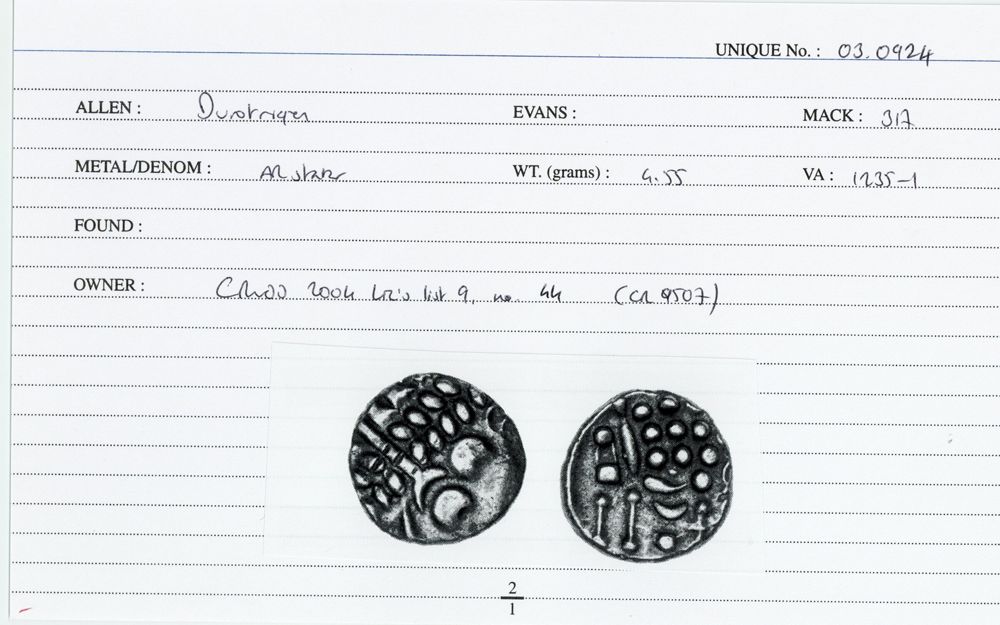 UNIQUE No. : 03.0924
ALLEN : Durotriges EVANS : MACK : 317
METAL/DENOM : AR stater WT. (grams) : 4.55 VA : 1235-1
FOUND :
OWNER : 2004 list 9, no. 44 (CR 9507)
2
1